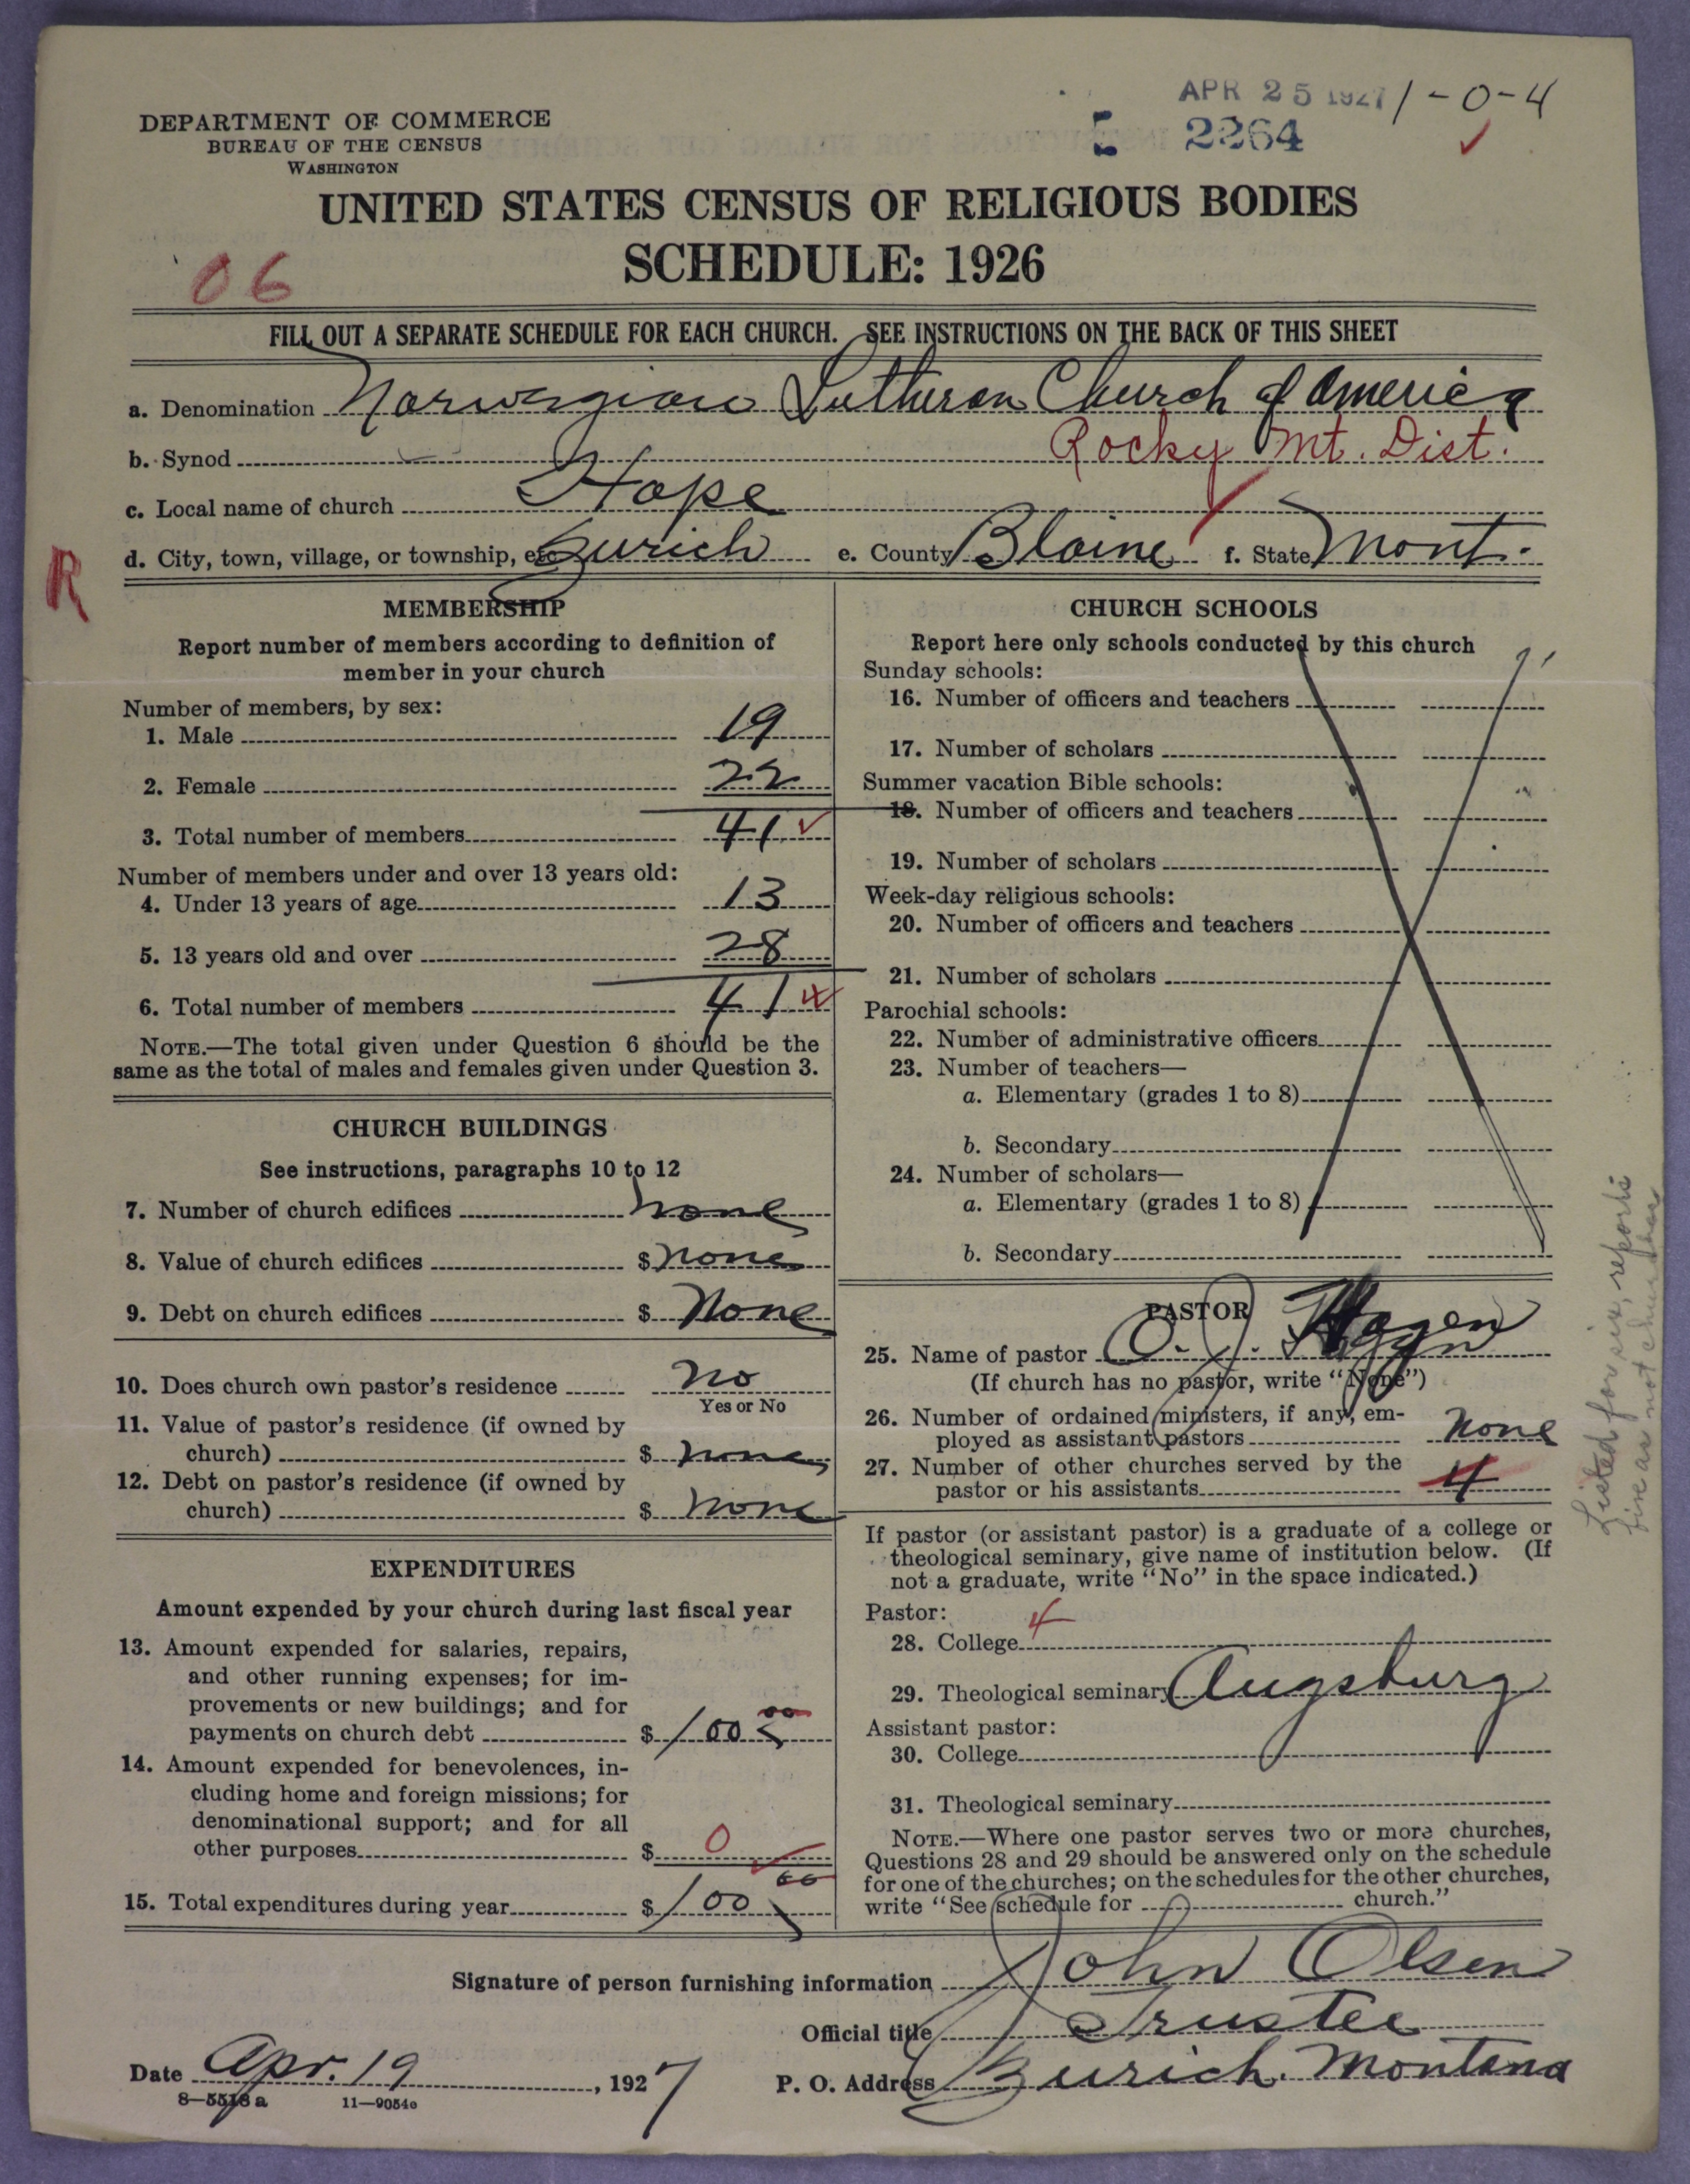 APR 25 1927 1-0-4
2264
DEPARTMENT OF COMMERCE
BUREAU OF THE CENSUS
WASHINGTON
UNITED STATES CENSUS OF RELIGIOUS BODIES
SCHEDULE: 1926
06
FILL OUT A SEPARATE SCHEDULE FOR EACH CHURCH. SEE INSTRUCTIONS ON THE BACK OF THIS SHEET
a. Denomination Norwegian Lutheran Church of America
b. Synod Rocky Mt. Dist.
c. Local name of church Hope
d. City, town, village, or township, etc. Zurich e. County Blaine f. State Mont.
R
MEMBERSHIP
Report number of members according to definition of
member in your church
Number of members, by sex:
1. Male 19
2. Female 22
3. Total number of members 41
Number of members under and over 13 years old:
4. Under 13 years of age 13
5. 13 years old and over 28
6. Total number of members 41
NOTE.—The total given under Question 6 should be the
same as the total of males and females given under Question 3.
CHURCH BUILDINGS
See instructions, paragraphs 10 to 12
7. Number of church edifices none
8. Value of church edifices $ none
9. Debt on church edifices $ None
10. Does church own pastor's residence no
Yes or No
11. Value of pastor's residence (if owned by
church) $ none
12. Debt on pastor's residence (if owned by
church) $ none
EXPENDITURES
Amount expended by your church during last fiscal year
13. Amount expended for salaries, repairs,
and other running expenses; for im-
provements or new buildings; and for
payments on church debt $ 100 00
14. Amount expended for benevolences, in-
cluding home and foreign missions; for
denominational support; and for all
other purposes $ 0
15. Total expenditures during year $ 100 00
CHURCH SCHOOLS
Report here only schools conducted by this church
Sunday schools:
16. Number of officers and teachers
17. Number of scholars
Summer vacation Bible schools:
18. Number of officers and teachers
19. Number of scholars
Week-day religious schools:
20. Number of officers and teachers
21. Number of scholars
Parochial schools:
22. Number of administrative officers
23. Number of teachers—
a. Elementary (grades 1 to 8)
b. Secondary
24. Number of scholars—
a. Elementary (grades 1 to 8)
b. Secondary
PASTOR
25. Name of pastor O. J. Hagen
(If church has no pastor, write "None")
26. Number of ordained ministers, if any, em-
ployed as assistant pastors none
27. Number of other churches served by the
pastor or his assistants 4
If pastor (or assistant pastor) is a graduate of a college or
theological seminary, give name of institution below. (If
not a graduate, write "No" in the space indicated.)
Pastor:
28. College
29. Theological seminary Augsburg
Assistant pastor:
30. College
31. Theological seminary
NOTE.—Where one pastor serves two or more churches,
Questions 28 and 29 should be answered only on the schedule
for one of the churches; on the schedules for the other churches,
write "See schedule for church."
Listed for six, reports
five as not churches
Signature of person furnishing information John Olsen
Official title Trustee
Date Apr. 19, 1927 P. O. Address Zurich. Montana
8—5518a 11—9054c